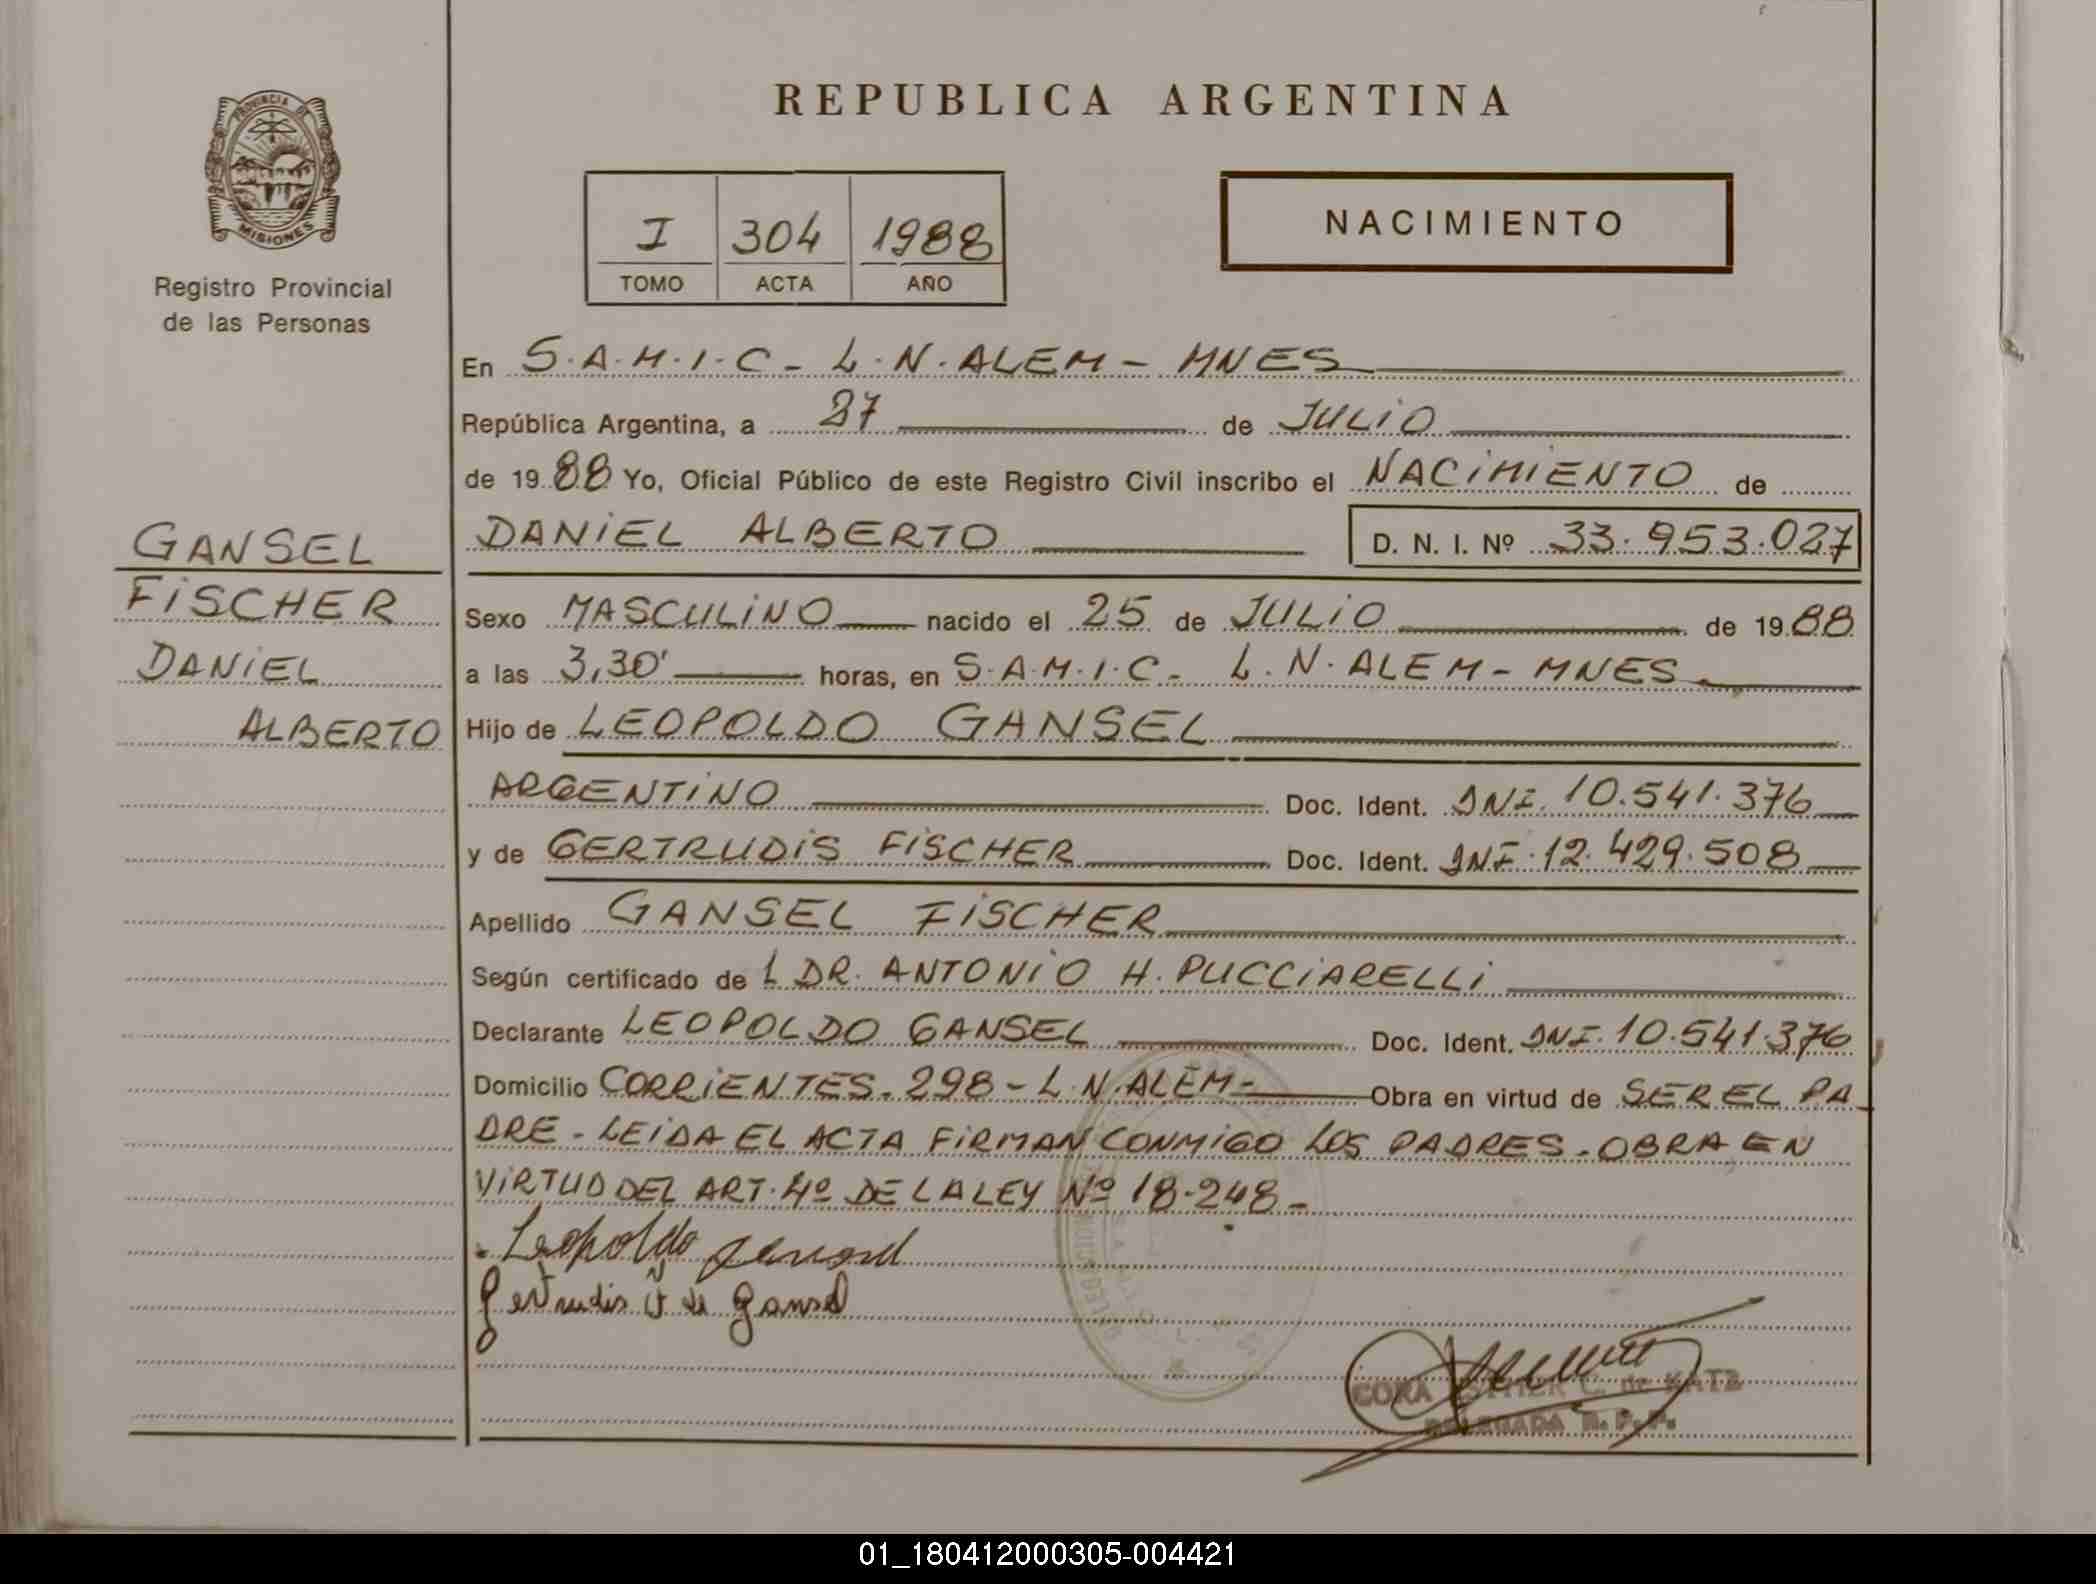 REPUBLICA ARGENTINA
PROVINCIA DE
MISIONES
Registro Provincial
de las Personas
I 304 1988
TOMO ACTA AÑO
NACIMIENTO
En S.A.M.I.C - L.N.ALEM - MNES
República Argentina, a 27 de JULIO
de 19 88 Yo, Oficial Público de este Registro Civil inscribo el NACIMIENTO de
DANIEL ALBERTO D. N. I. Nº 33.953.027
GANSEL
FISCHER
DANIEL
ALBERTO
Sexo MASCULINO nacido el 25 de JULIO de 19 88
a las 3,30' horas, en S.A.M.I.C - L.N.ALEM - MNES
Hijo de LEOPOLDO GANSEL
ARGENTINO Doc. Ident. DNI. 10.541.376
y de GERTRUDIS FISCHER Doc. Ident. DNI. 12.429.508
Apellido GANSEL FISCHER
Según certificado de L DR. ANTONIO H. PUCCIARELLI
Declarante LEOPOLDO GANSEL Doc. Ident. DNI. 10.541.376
Domicilio CORRIENTES. 298 - L.N.ALEM - Obra en virtud de SER EL PA
DRE - LEIDA EL ACTA FIRMAN CONMIGO LOS PADRES - OBRA EN
VIRTUD DEL ART. 4º DE LA LEY Nº 18.248 -
Leopoldo Gansel
Gertrudis F de Gansel
CORA ESTHER C. de KATZ
DELEGADA R. P. P.
01_180412000305-004421